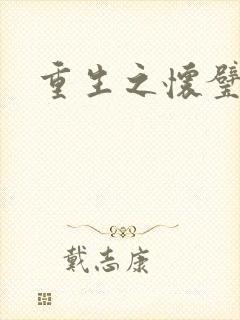 重生之怀璧
戴志康